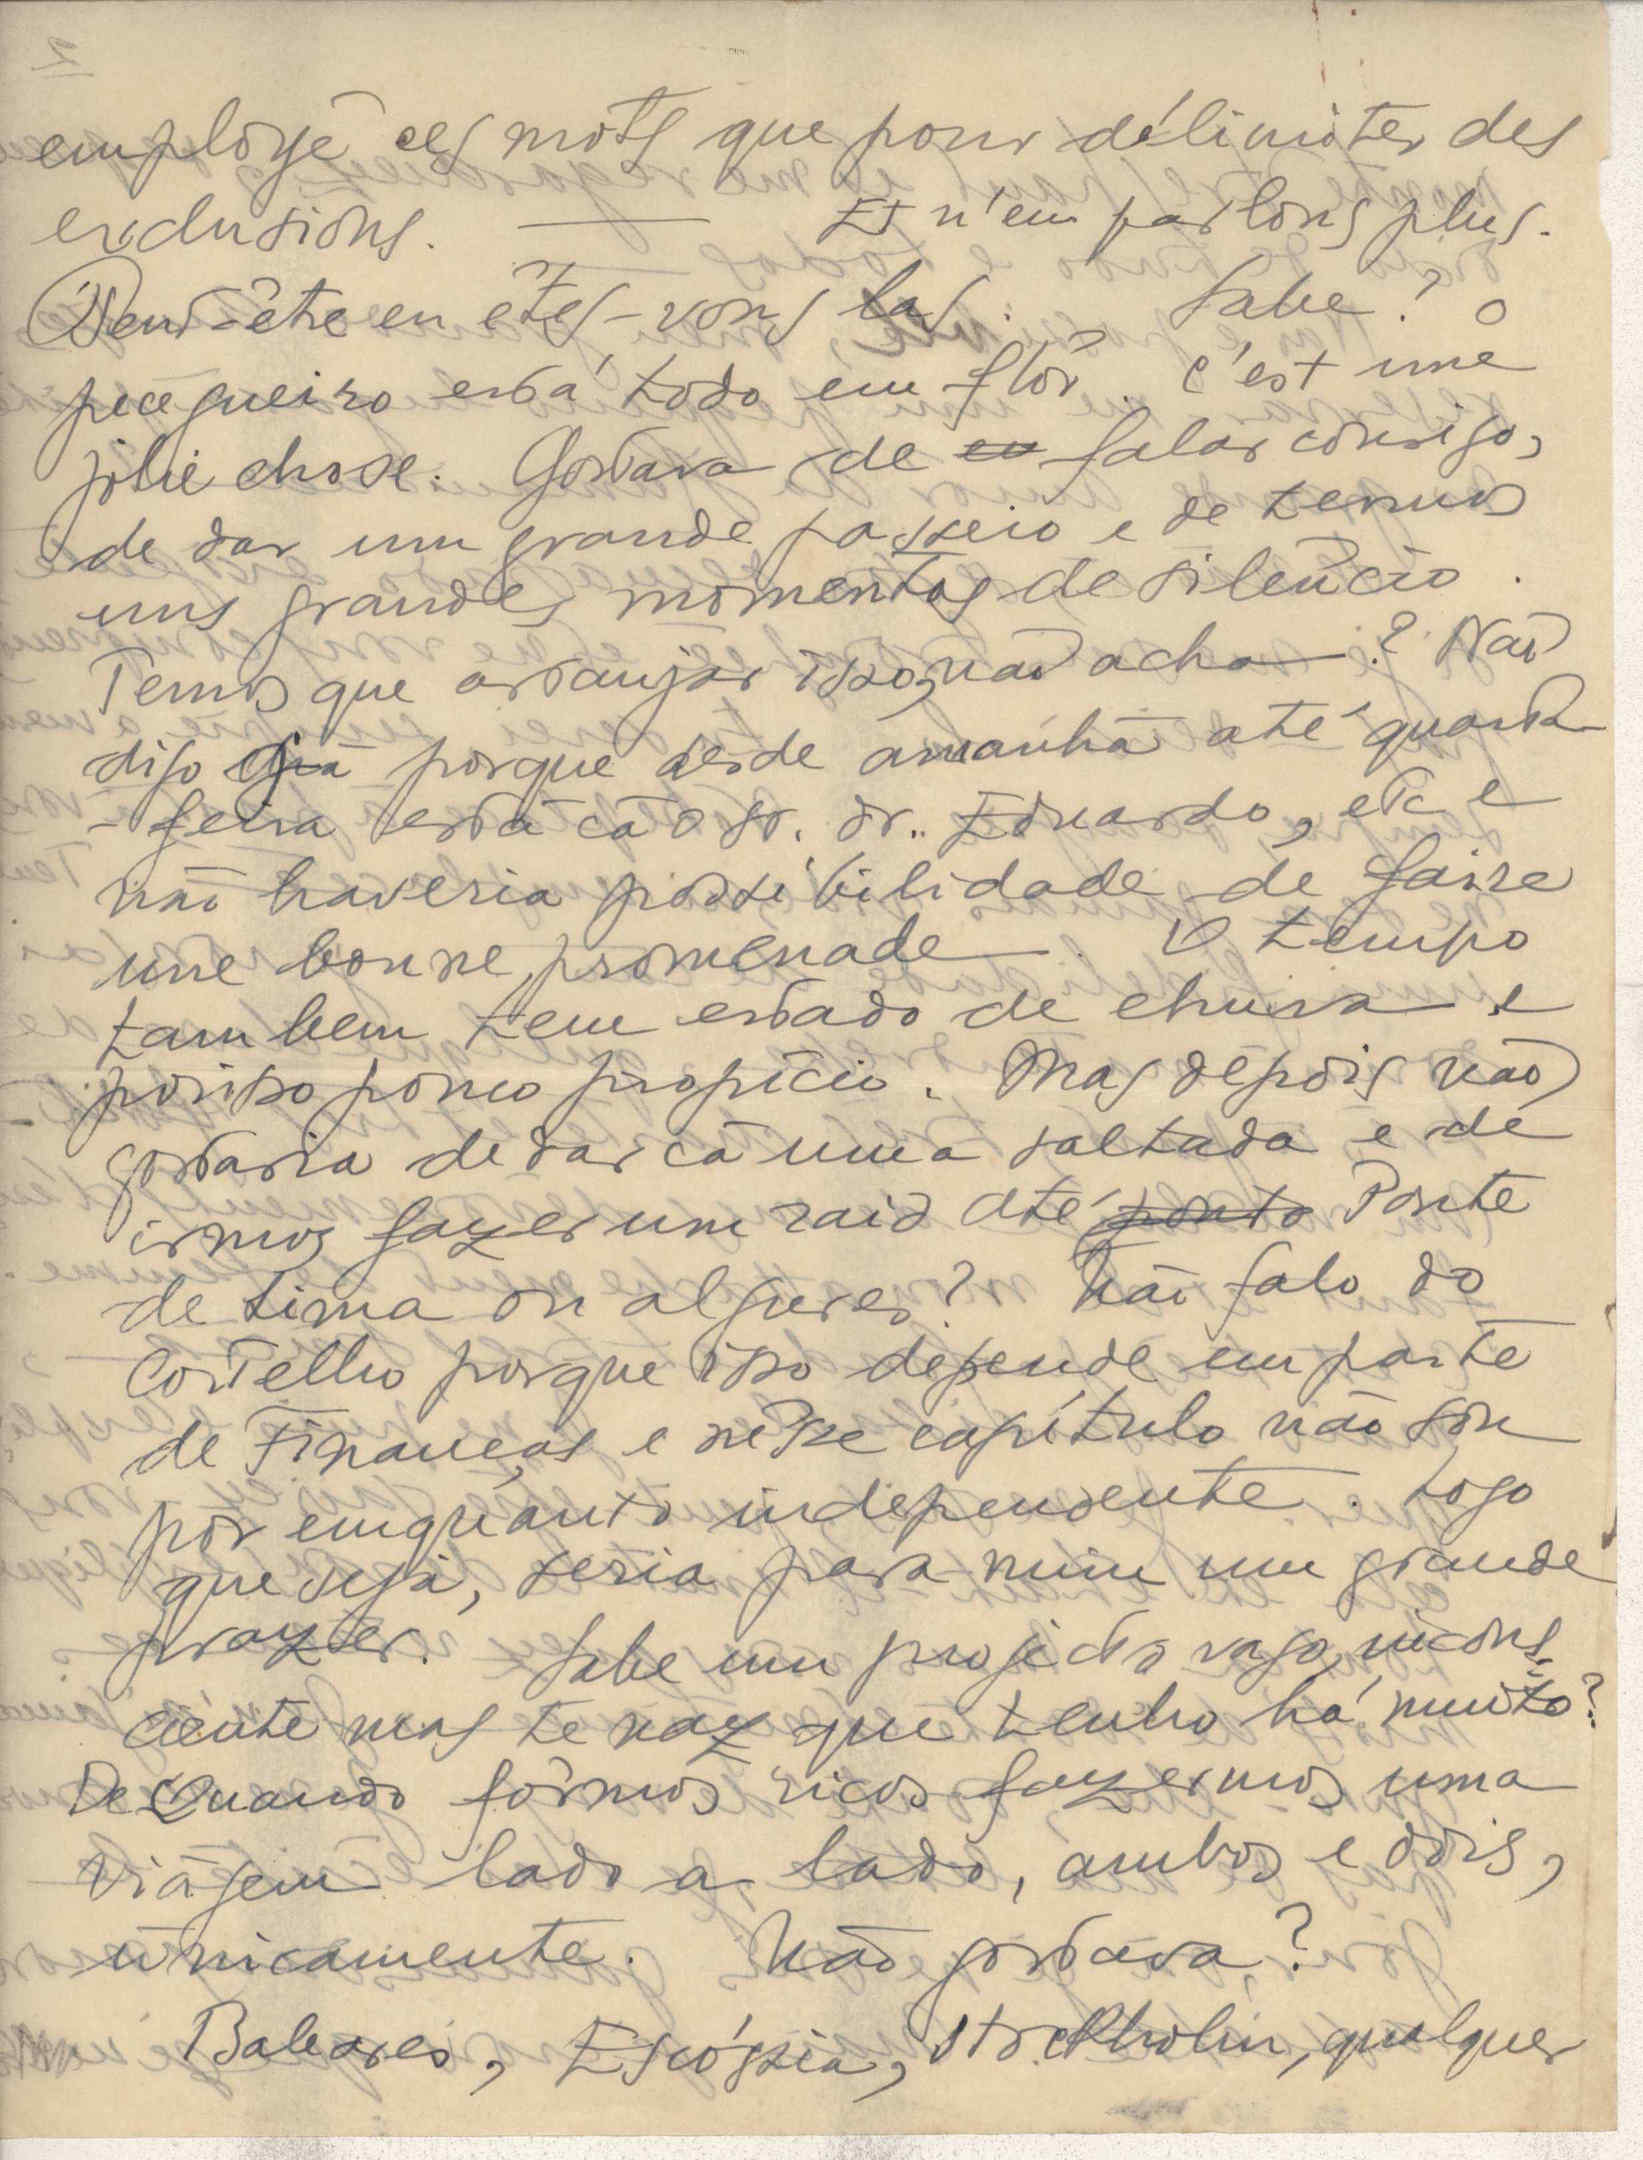 employé ces mots que pour délimiter des
exclusions. —— Et n'em parlons plus.
Peut-être en êtes-vous las. Sabe? o
pecegueiro está todo em flôr. C'est une
jolie chose. Gostava de eu falar comsigo,
de dar um grande passeio e de termos
uns grandes momentos de silencio.
Temos que arranjar isso, não acha? Não
digo já porque desde amanhã até quarta
-feira está cá o sr. dr. Eduardo, etc e
não haveria possibilidade de faire
une bonne promenade. O tempo
tambem tem estado de chuva e
porisso pouco propício. Mas depois não
gostaria de dar cá uma saltada e de
irmos fazer um raid até ponto Ponte
de Lima ou algures? Não falo do
Cortelho porque isso depende em parte
de Finanças e nêsse capítulo não sou
por emquanto independente. Logo
que seja, seria para mim um grande
prazer. Sabe um projecto vago, incons-
ciente mas tenaz que tenho há muito?
De Quando fôrmos ricos fazermos uma
viágem lado a lado, ambos e dois,
únicamente. Não gostava?
Baleares, Escóssia, Stockholm, qualquer